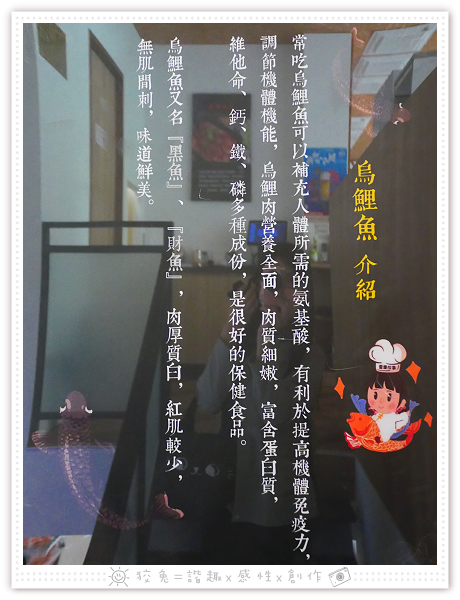 烏鯉魚 介紹
常吃烏鯉魚可以補充人體所需的氨基酸，有利於提高機體免疫力，
調節機體機能，烏鯉肉營養全面，肉質細嫩，富含蛋白質，
維他命、鈣、鐵、磷多種成份，是很好的保健食品。
烏鯉魚又名『黑魚』、『財魚』，肉厚質白，紅肌較少，
無肌間刺，味道鮮美。
狡兔=諧趣x感性x創作